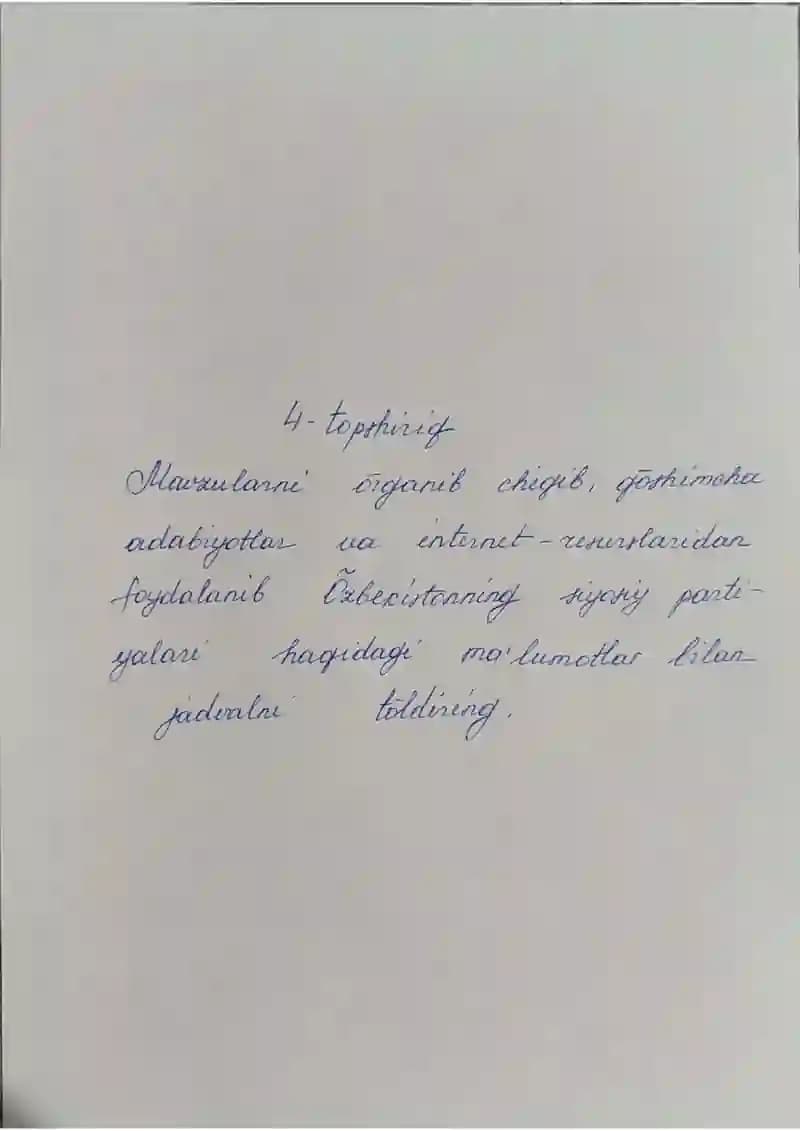 4-topshiriq
Mavzularni ōrganib chiqib, qōshimcha
adabiyotlar va internet-resurslaridan
foydalanib Õzbekistonning siyosiy parti-
yalari haqidagi ma'lumotlar bilan
jadvalni tōldiring.